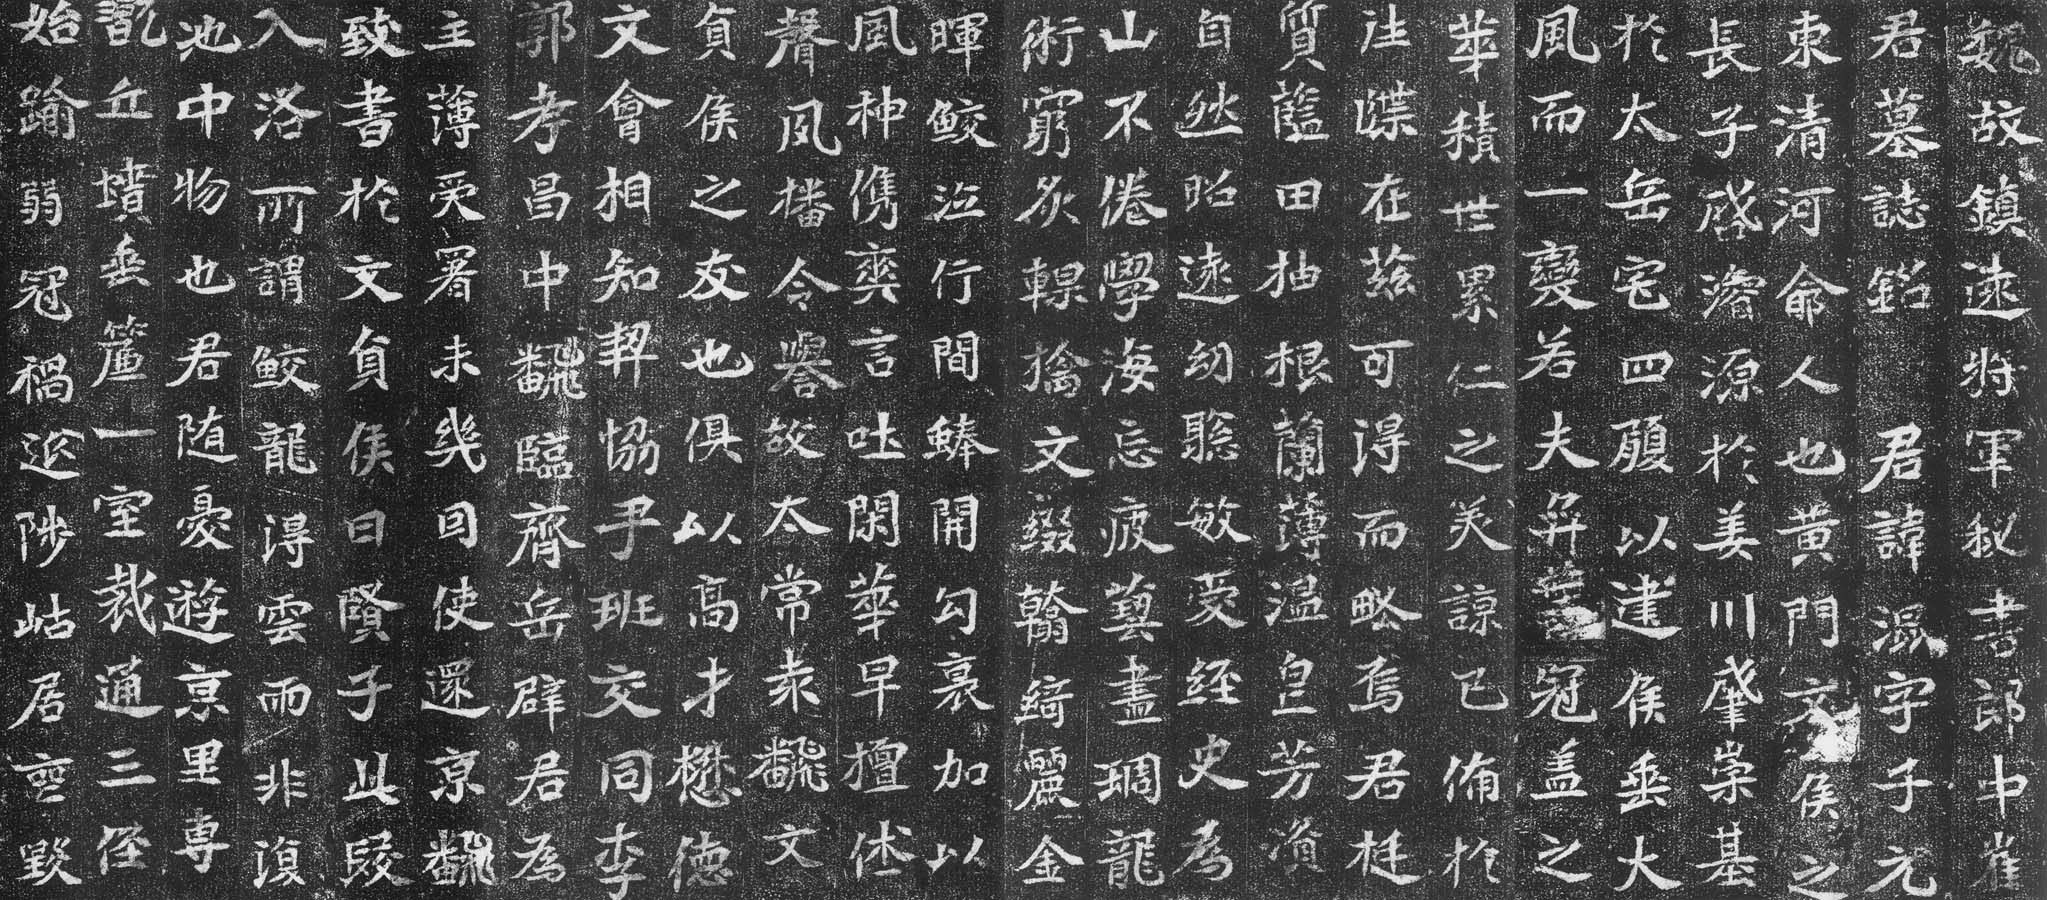 魏故鎮遠將軍秘書郎中崔
君墓誌銘 君諱混字子元
東清河俞人也黄門文侯之
長子啓濬源於姜川肇崇基
於太岳宅四履以建侯垂大
風而一變若夫弁冠盖之
華積世累仁之美諒已俻於
注諜在兹可得而略焉君挺
質藍田抽根蘭薄温芳
自然昭遠幼聡敏受經史為
山不倦學海忘疲藝盡琱龍
術窮炙輠擒文綴翰綺麗金
暉鮫泣行間蜯開勾裏加以
風神儁爽言吐閑華早擅休
聲夙播令譽故太常袁翻文
貞侯之友也俱以高才懋德
文會相知契協尹班交同李
郭孝昌中翻臨齊岳辟君為
主薄受署未幾囙使還京翻
致書於文貞侯曰賢子此段
入洛所謂鮫龍得雲雨非復
池中物也君随憂遊京里専
翫丘墳垂簾一室裁通三徑
始踰弱冠禍延陟岵居喪毀